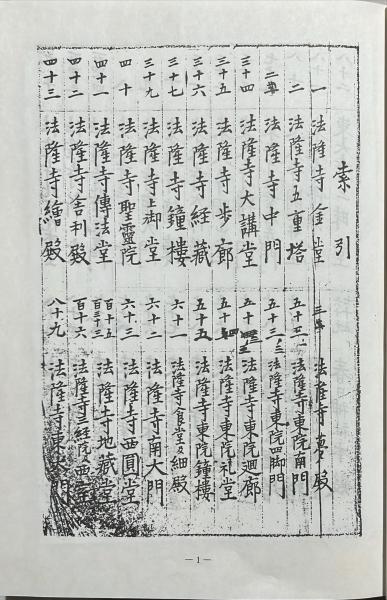 索引
一 法隆寺金堂
二 法隆寺五重塔
法隆寺中門
三十四 法隆寺大講堂
三十五 法隆寺歩廊
三十六 法隆寺経藏
三十七 法隆寺鐘樓
三十九 法隆寺上御堂
四十 法隆寺聖靈院
四十一 法隆寺傳法堂
四十二 法隆寺舎利殿
四十三 法隆寺繪殿
法隆寺夢殿
法隆寺東院南門
法隆寺東院四脚門
法隆寺東院廻廊
法隆寺東院礼堂
五十五 法隆寺東院鐘樓
六十一 法隆寺食堂及細殿
六十二 法隆寺南大門
六十三 法隆寺西圓堂
百十五 百三十三 法隆寺地藏堂
百十六 法隆寺三経院西室
八十九 法隆寺東大門
—1—